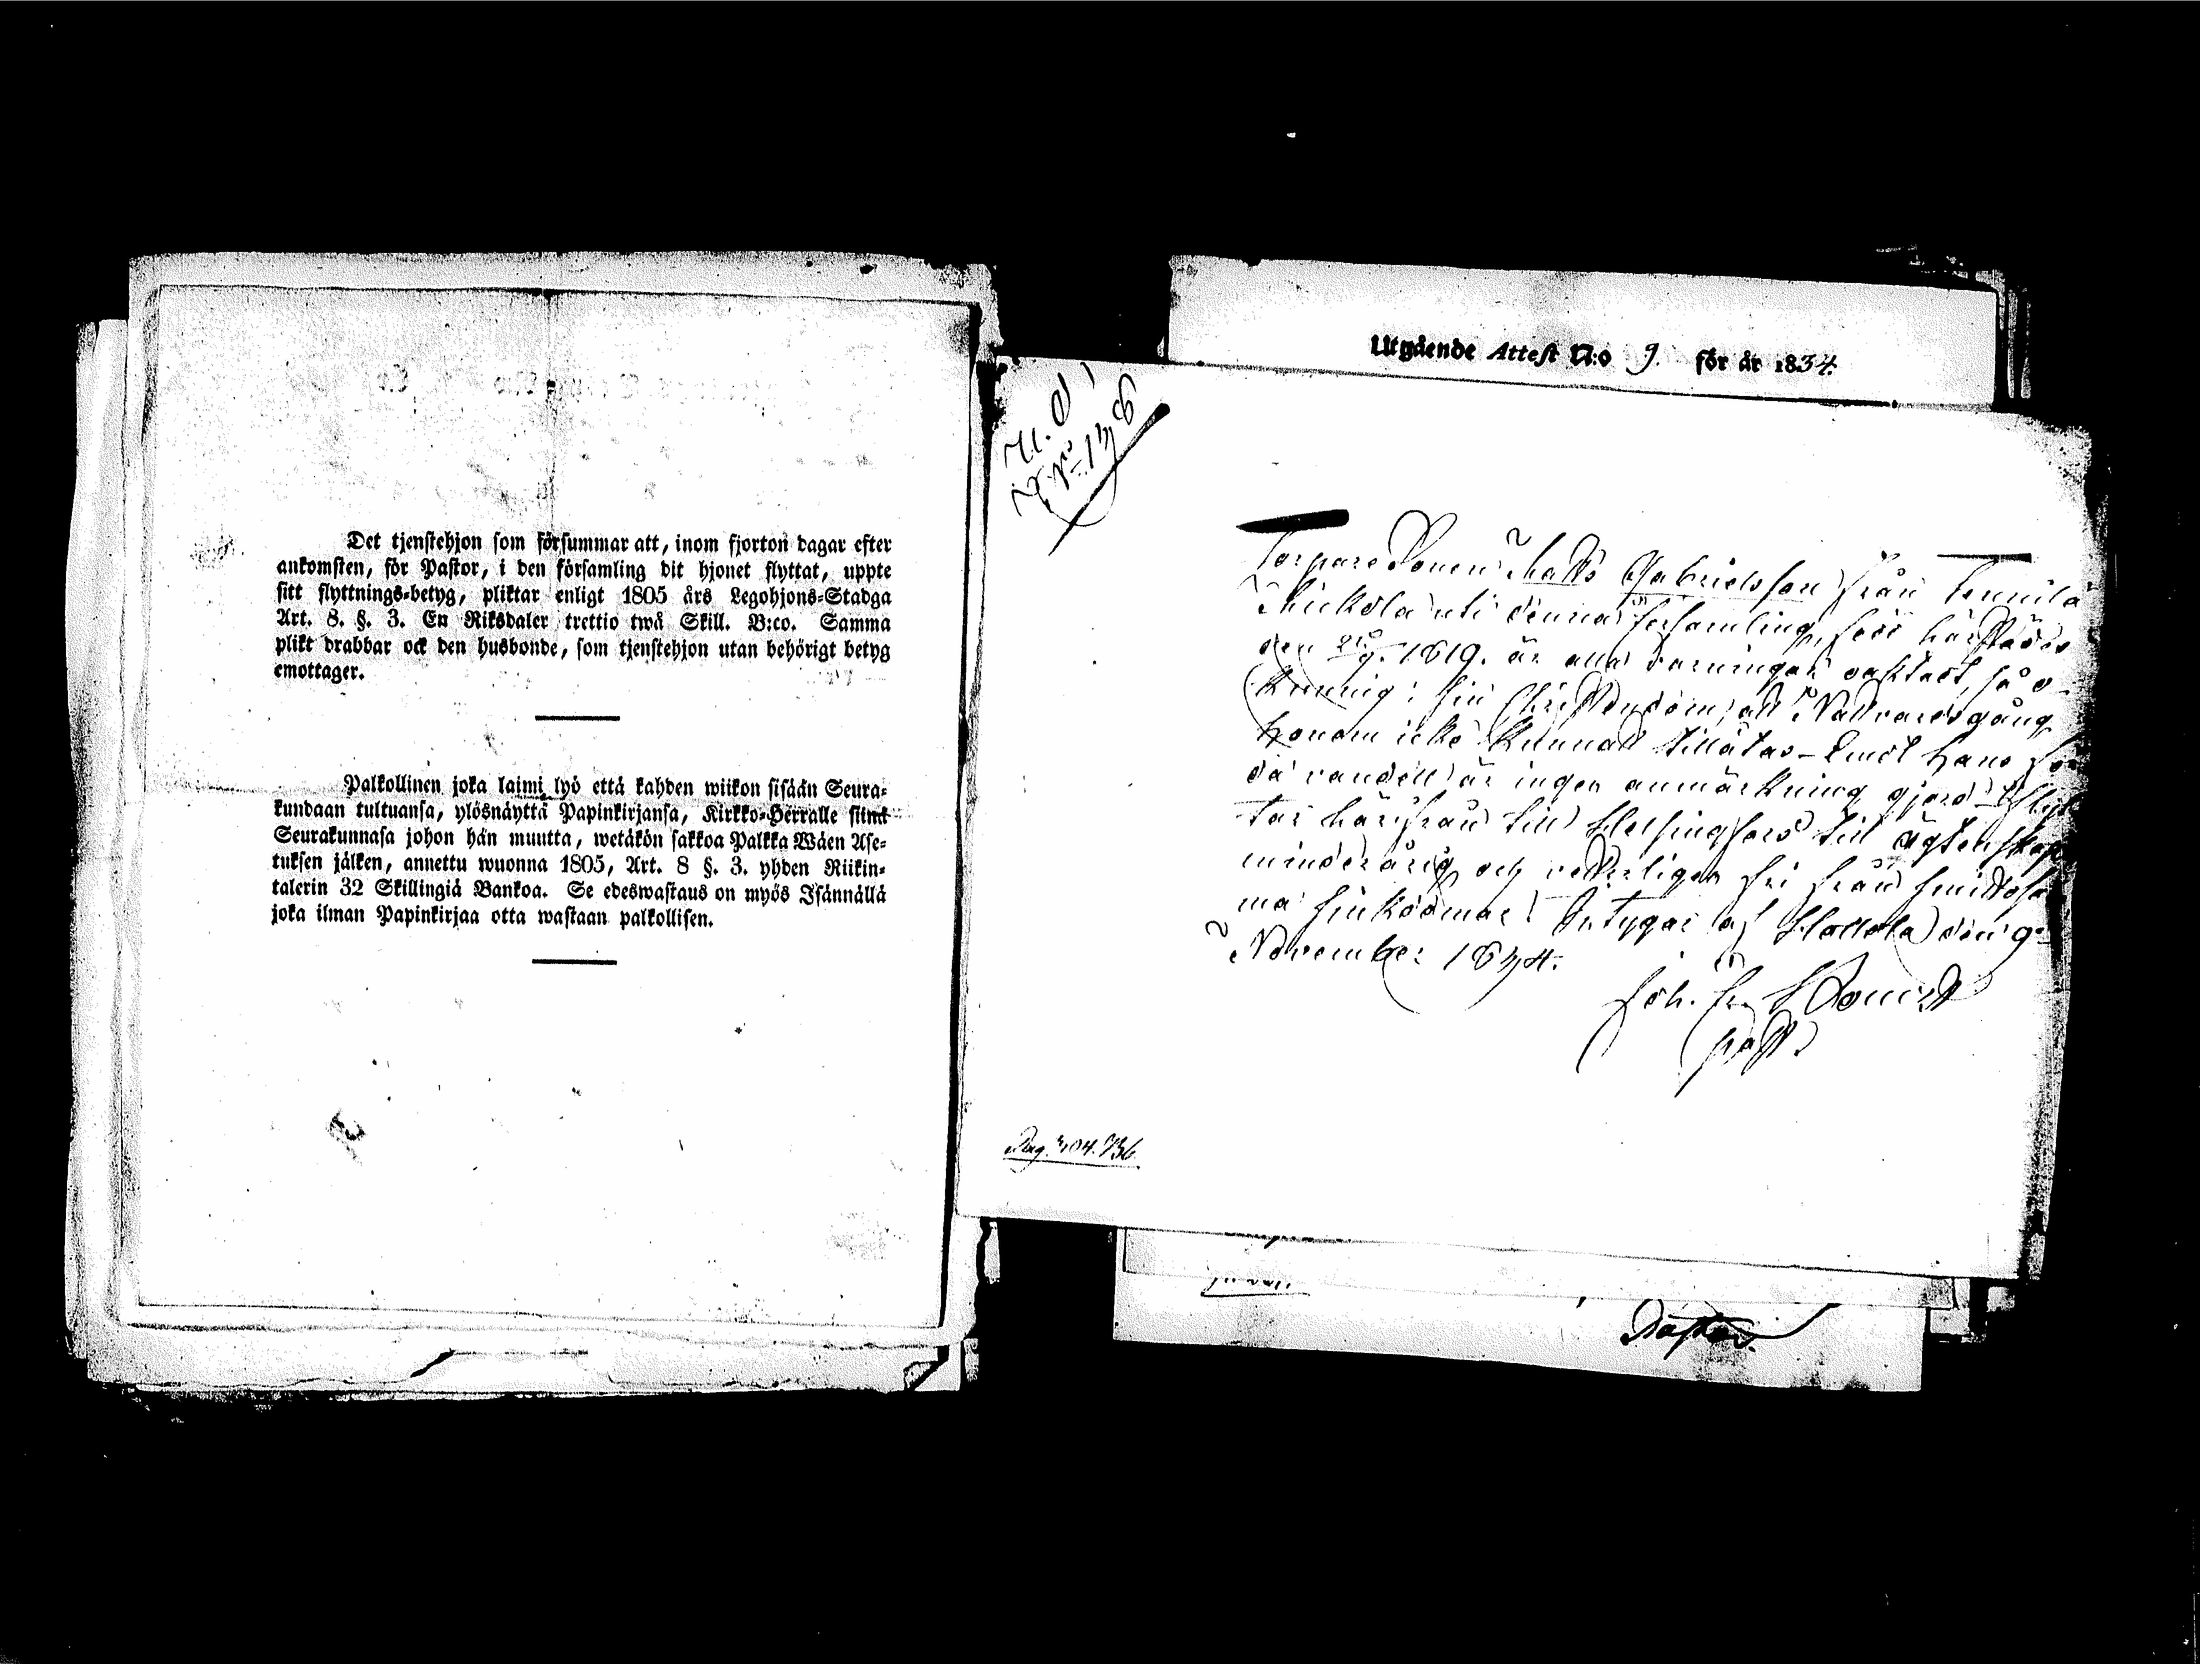 Det tjenstehjon som försummar att, inom fjorton dagar efter
ankomsten, för Pastor, i den församling dit hjonet flyttat, uppte
sitt flyttnings-betyg, pliktar enligt 1805 års Legohjons-Stadga
Art. 8. §. 3. En Riksdaler trettio twå Skill. B:co. Samma
plikt drabbar ock den husbonde, som tjenstehjon utan behörigt betyg
emottager.
Palkollinen joka laimi lyö että kahden wiikon sisään Seura-
kundaan tultuansa, ylösnäyttä Papinkirjansa, Kirkko-Herralle siinä
Seurakunnasa johon hän muutta, wetäkön sakkoa Palkka Wäen Ase-
tuksen jälken, annettu wuonna 1805, Art. 8 §. 3. yhden Riikin-
talerin 32 Skillingiä Bankoa. Se edeswastaus on myös Isännällä
joka ilman Papinkirjaa otta wastaan palkollisen.
Utgående Attest N:o 9. för år 1834.
No 138
Torpare Sonen Matts Gabrielsson från Tennilä
Mickola uti denna församling, född härstädes
den 1819. är all varningar oaktadt, så o-
kunnig i sin Christendom, att Nattvardsgång
honom icke kunnat tillåtas - Emot hans fre-
da vandel är ingen anmärkning gjord - Flyt-
tar härifrån till Helsingfors till ägtenskap
minderårig och veterligen fri från smittosam-
ma sjukdomar! Intygar af Hollola den 9
November 1834.
Joh. Fr.
past.
Pag. 404. 736
Pastor.